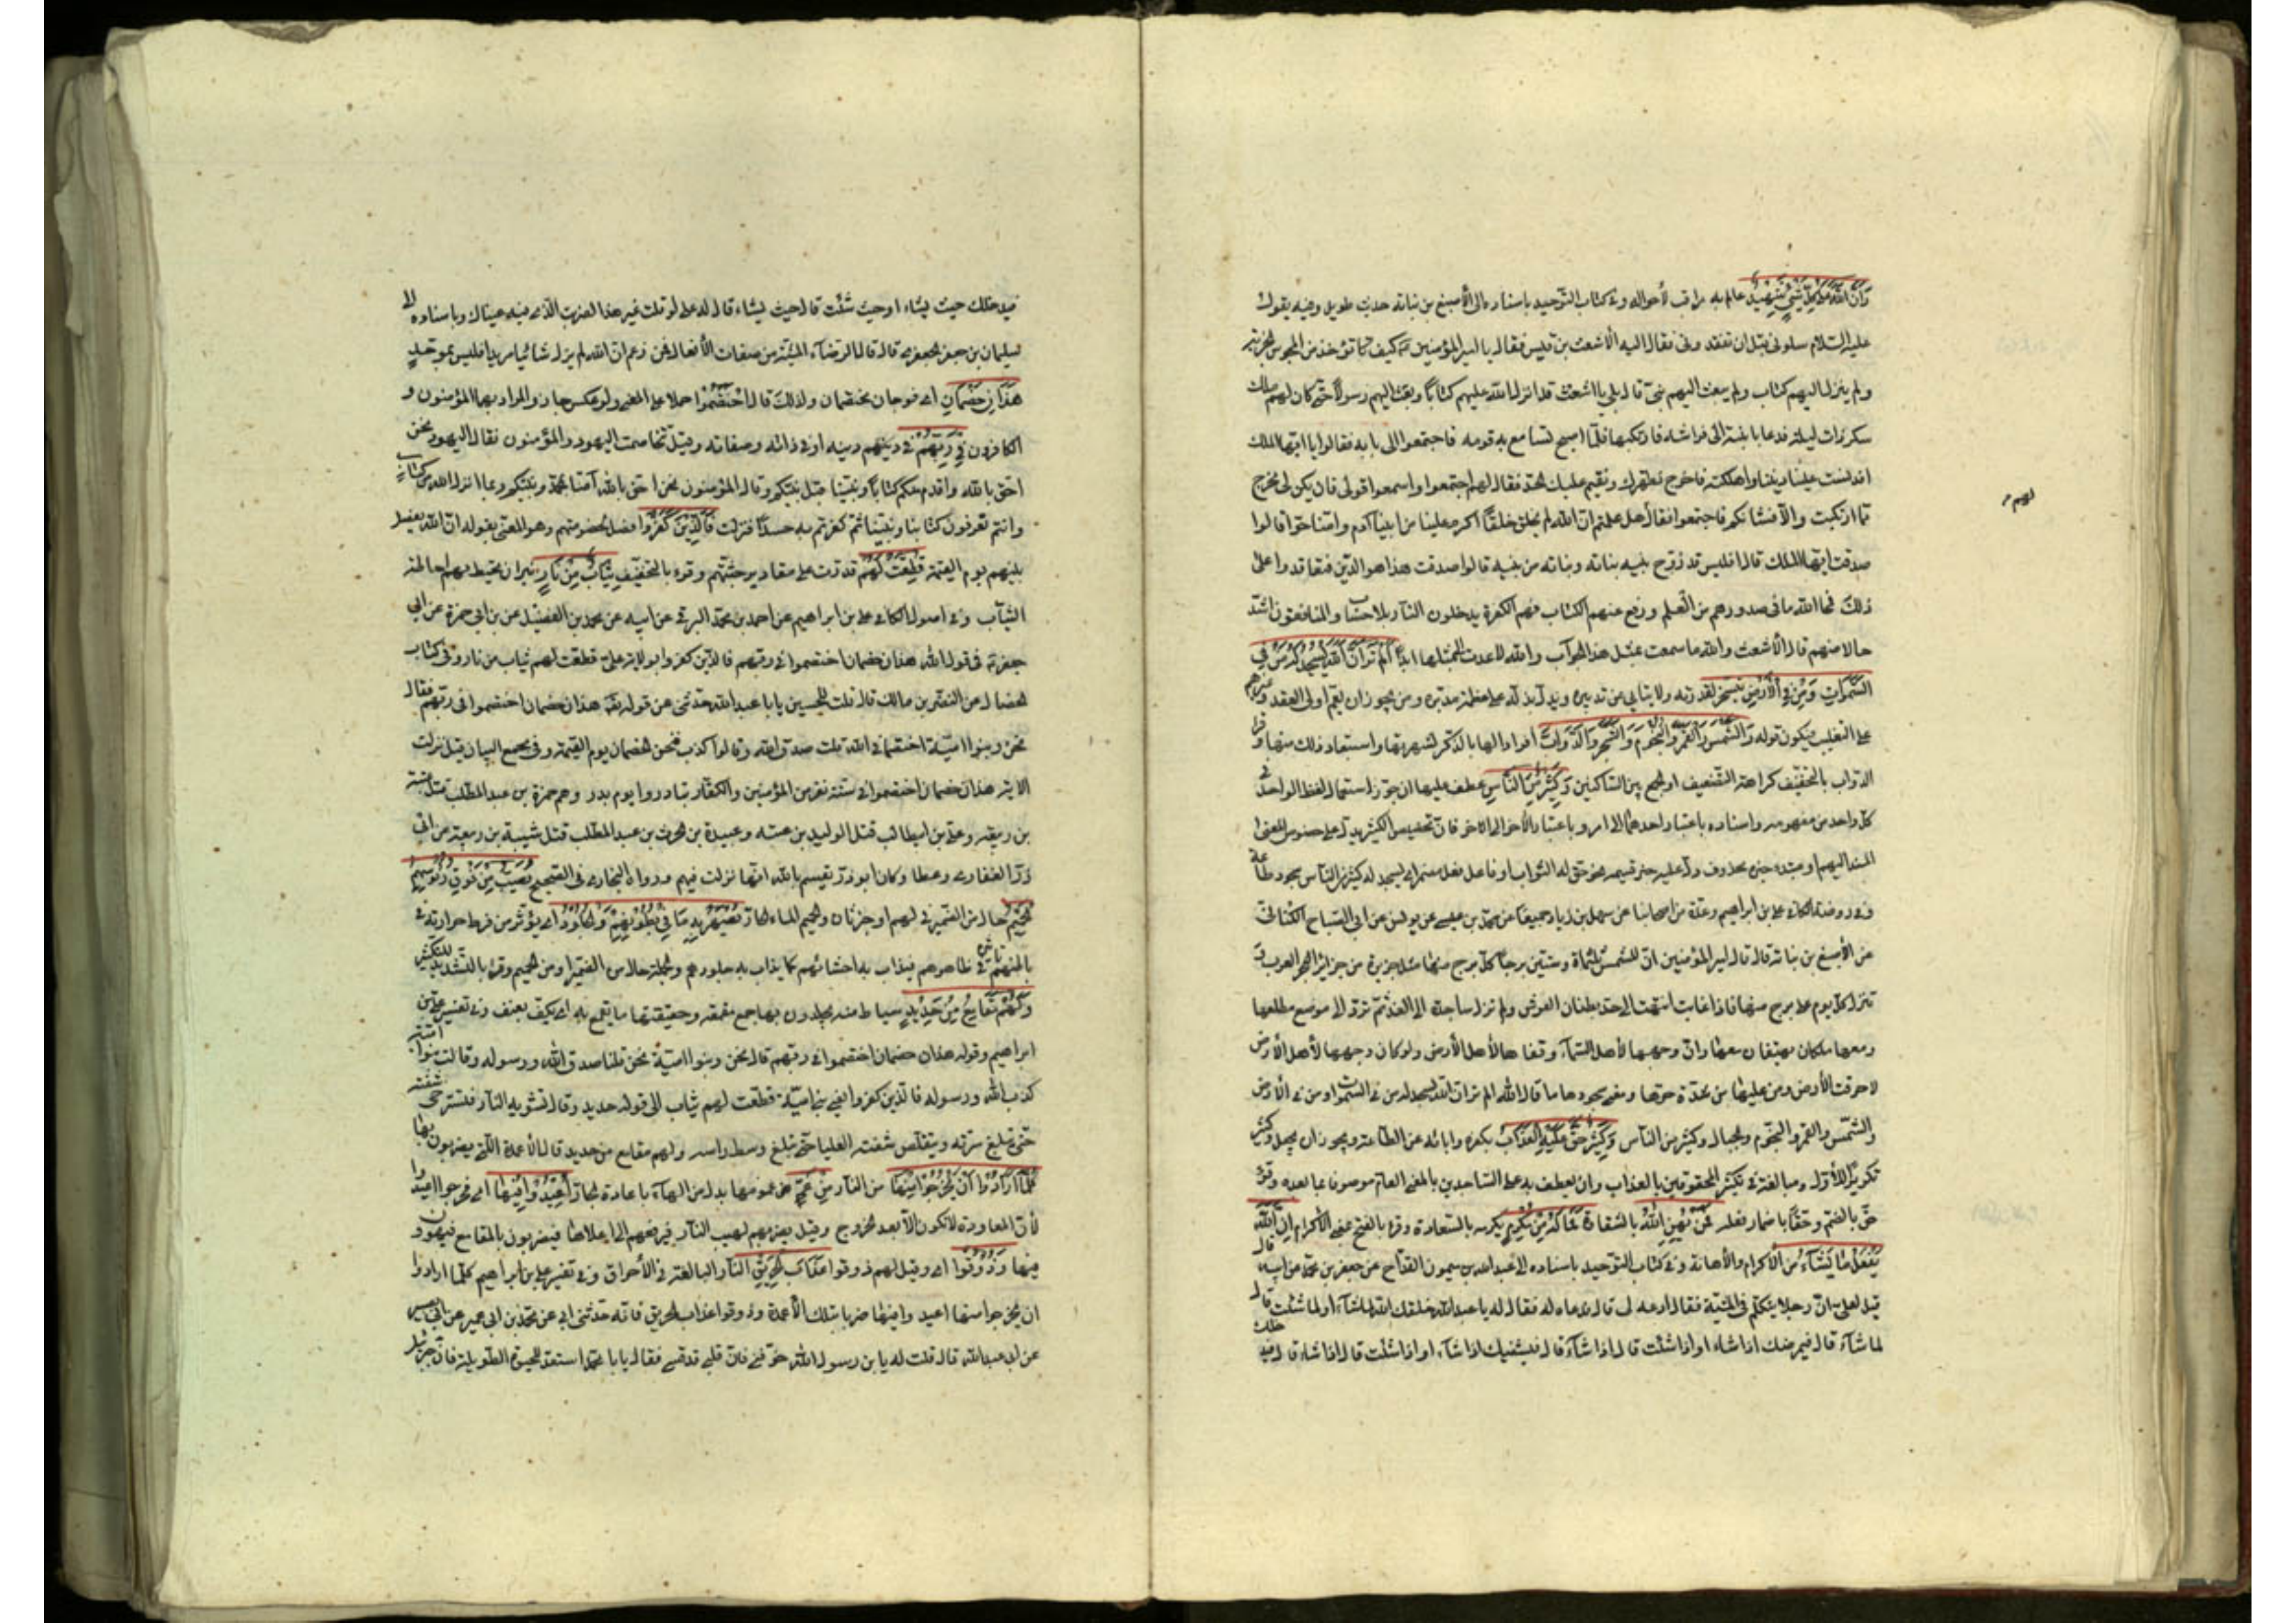 وَأَنَّ اللهَ عَلَى كُلِّ شَيْءٍ شَهِيدٌ عالم به مراقب لأحواله وفى كتاب التوحيد باسناده الى الأصبغ بن نباته حديث طويل وفيه يقول
عليه السلام سلونى قبل ان تفقدونى فقام اليه الأشعث بن قيس فقال يا امير المؤمنين كيف تؤخذ من المجوس الجزية
ولم ينزل اليهم كتاب ولم يبعث اليهم نبى قال بلى يا اشعث قد انزل الله عليهم كتابا وبعث اليهم رسولا حتى كان لهم ملك
سكر ذات ليلة فدعا بابنته الى فراشه فارتكبها فلما اصبح تسامع به قومه فاجتمعوا الى بابه فقالوا ايها الملك
دنست علينا ديننا واهلكته فاخرج نطهرك ونقيم عليك الحد فقال لهم اجتمعوا واسمعوا قولى فان يكن لى مخرج
مما ارتكبت والا فشأنكم فاجتمعوا فقال هل علمتم ان الله لم يخلق خلقا اكرم عليه من ابينا آدم وامنا حوا قالوا
صدقت ايها الملك قال افليس قد زوج بنيه بناته وبناته من بنيه قالوا صدقت هذا هو الدين فتعاقدوا على
ذلك فمحا الله ما فى صدورهم من العلم ورفع عنهم الكتاب فهم الكفرة يدخلون النار بلا حساب والمنافقون اشد
حالا منهم قال الأشعث والله ما سمعت بمثل هذا الجواب والله لا عدت الى مثلها ابدا أَلَمْ تَرَ أَنَّ اللهَ يَسْجُدُ لَهُ مَنْ فِي
السَّمَوَاتِ وَمَنْ فِي الْأَرْضِ يتسخر لقدرته ولا يتأبى عن تدبيره ويدل بذله على عظمة مدبره ومن يجوز ان يعم اولى العقل وغيرهم
على التغليب فيكون قوله وَالشَّمْسُ وَالْقَمَرُ وَالنُّجُومُ وَالشَّجَرُ وَالدَّوَابُّ افرادا لها بالذكر لشهرتها واستبعاد ذلك منها وقرأ
الدواب بالتخفيف كراهة التضعيف او الجمع بين الساكنين وَكَثِيرٌ مِنَ النَّاسِ عطف عليها ان جوز استعمال اللفظ الواحد فى
كل واحد من مفهوميه واسناده باعتبار احدهما الى امر وباعتبار الآخر الى الآخر فان تخصيص الكثير يدل على خصوص المعنى
المسند اليهم او مبتدء خبره محذوف دل عليه خبر قسيمه نحو حق له الثواب او فاعل فعل مضمر اى ليسجد له كثير من الناس سجود طاعة
وفى روضة الكافى على بن ابراهيم وعدة من اصحابنا عن سهل بن زياد جميعا عن محمد بن عيسى عن يونس عن ابى الصباح الكنانى
عن الأصبغ بن نباته قال قال امير المؤمنين ان للشمس ثلثمائة وستين برجا كل برج منها مثل جزيرة من جزائر العرب
تنزل كل يوم على برج منها فاذا غابت انتهت الى حد بطنان العرش ولم تزل ساجدة الى الغد ثم ترد الى موضع مطلعها
ومعها ملكان يهتفان معها وان وجهها لأهل السماء وقفاها لأهل الأرض ولو كان وجهها لأهل الأرض
لاحرقت الأرض ومن عليها من شدة حرها ومعنى سجودها ما قال الله الم تر ان الله يسجد له من فى السموات ومن فى الأرض
والشمس والقمر والنجوم والجبال وكثير من الناس وَكَثِيرٌ حَقَّ عَلَيْهِ الْعَذَابُ بكفره وابائه عن الطاعة ويجوز ان يجعل وكثير
تكريرا للأول ومبالغة فى تكثير المحقوقين بالعذاب وان يعطف به على الساجدين بالمعنى العام موصوفا بما بعده وقرئ
حق بالضم وحقا باضمار فعله وَمَنْ يُهِنِ اللهُ بالشقاوة فَمَا لَهُ مِنْ مُكْرِمٍ يكرمه بالسعادة وقرئ بالفتح بمعنى الأكرام إِنَّ اللهَ
يَفْعَلُ مَا يَشَاءُ من الأكرام والأهانة وفى كتاب التوحيد باسناده الى عبد الله بن ميمون القداح عن جعفر بن محمد عن ابيه قال
قيل لعلى ان رجلا يتكلم فى المشية فقال ادعه لى قال فدعاه له فقال له يا عبد الله خلقك الله لما شاء او لما شئت قال
لما شاء قال فيمرضك اذا شاء او اذا شئت قال اذا شاء قال فيشفيك اذا شاء او اذا شئت قال اذا شاء قال فيدخلك
لهم
فيدخلك حيث يشاء او حيث شئت قال حيث يشاء قال له على لو قلت غير هذا لضربت الذى فيه عيناك وباسناده الى
سليمان بن جعفر الجعفرى قال قال الرضا المشية من صفات الأفعال فمن زعم ان الله لم يزل شائيا مريدا فليس بموحد
هَذَانِ خَصْمَانِ اى فوجان مختصمان ولذلك قال اخْتَصَمُوا حملا على المعنى ولو عكس جاز والمراد بهما المؤمنون و
الكافرون فِي رَبِّهِمْ فى دينهم او فى ذاته وصفاته وقيل تخاصمت اليهود والمؤمنون فقال اليهود نحن
احق بالله واقدم منكم كتابا ونبينا قبل نبيكم وقال المؤمنون نحن احق بالله آمنا بمحمد ونبيكم وبما انزل الله من كتاب
وانتم تعرفون كتابنا ونبينا ثم كفرتم به حسدا فنزلت فَالَّذِينَ كَفَرُوا فصل لخصومتهم وهو المعنى بقوله ان الله يفصل
بينهم يوم القيمة قُطِّعَتْ لَهُمْ قدرت على مقادير جثتهم وقرئ بالتخفيف ثِيَابٌ مِنْ نَارٍ نيران تحيط بهم احاطة
الثياب وفى اصول الكافى على بن ابراهيم عن احمد بن محمد البرقى عن ابيه عن محمد بن الفضيل عن ابى حمزة عن ابى
جعفر فى قول الله هذان خصمان اختصموا فى ربهم فالذين كفروا بولاية على قطعت لهم ثياب من نار وفى كتاب
الخصال عن النضر بن مالك قال قلت للحسين يا ابا عبد الله حدثنى عن قوله هذان خصمان اختصموا فى ربهم فقال
نحن وبنو امية اختصمنا فى الله قلت صدق الله وقالوا كذب فنحن الخصمان يوم القيمة وفى مجمع البيان قيل نزلت
الاية هذان خصمان اختصموا فى ستة نفر من المؤمنين والكفار تبارزوا يوم بدر وهم حمزة بن عبد المطلب قتل عتبة
بن ربيعة وعلى بن ابيطالب قتل الوليد بن عتبة وعبيدة بن الحرث بن عبد المطلب قتل شيبة بن ربيعة عن ابى
ذر الغفارى وعطا وكان ابو ذر يقسم بالله انها نزلت فيهم ورواه البخارى فى الصحيح يُصَبُّ مِنْ فَوْقِ رُءُوسِهِمُ
الْحَمِيمُ حال من الضمير فى لهم او خبر ثان والحميم الماء الحار يُصْهَرُ بِهِ مَا فِي بُطُونِهِمْ وَالْجُلُودُ اى يؤثر من فرط حرارته فى
باطنهم تأثيره فى ظاهرهم فيذاب به احشائهم كما يذاب به جلودهم والجملة حال من الضمير او من الحميم وقرئ بالتشديد للتكثير
وَلَهُمْ مَقَامِعُ مِنْ حَدِيدٍ سياط منه يجلدون بها جمع مقمعة وحقيقتها ما يقمع به اى يكف بعنف وفى تفسير على بن
ابراهيم وقوله هذان خصمان اختصموا فى ربهم قال نحن وبنو امية نحن قلنا صدق الله ورسوله وقالت بنو امية
كذب الله ورسوله فالذين كفروا يعنى بنى امية قطعت لهم ثياب الى قوله حديد وقال تشويه النار فتسترخى شفته
حتى تبلغ سرته ويتقلص شفته العليا حتى تبلغ وسط رأسه ولهم مقامع من حديد قال الأعمدة التى يضربون بها
كُلَّمَا أَرَادُوا أَنْ يَخْرُجُوا مِنْهَا من النار مِنْ غَمٍّ من غمومها بدل من الهاء باعادة الجار أُعِيدُوا فِيهَا اى فخرجوا اعيدوا
لأن المعاودة لا تكون الا بعد الخروج وقيل يضربهم لهيب النار فيرفعهم الى اعلاها فيضربون بالمقامع فيهوون
فيها وَذُوقُوا اى وقيل لهم ذوقوا عَذَابَ الْحَرِيقِ النار البالغة فى الأحراق وفى تفسير على بن ابراهيم كلما ارادوا
ان يخرجوا منها اعيدوا فيها ضربا بتلك الأعمدة وذوقوا عذاب الحريق فانه حدثنى ابى عن محمد بن ابى عمير عن ابى بصير
عن ابى عبد الله قال قلت له يا بن رسول الله خوفنى فان قلبى قد قسى فقال يا با محمد استعد للحيوة الطويلة فان جبرئيل